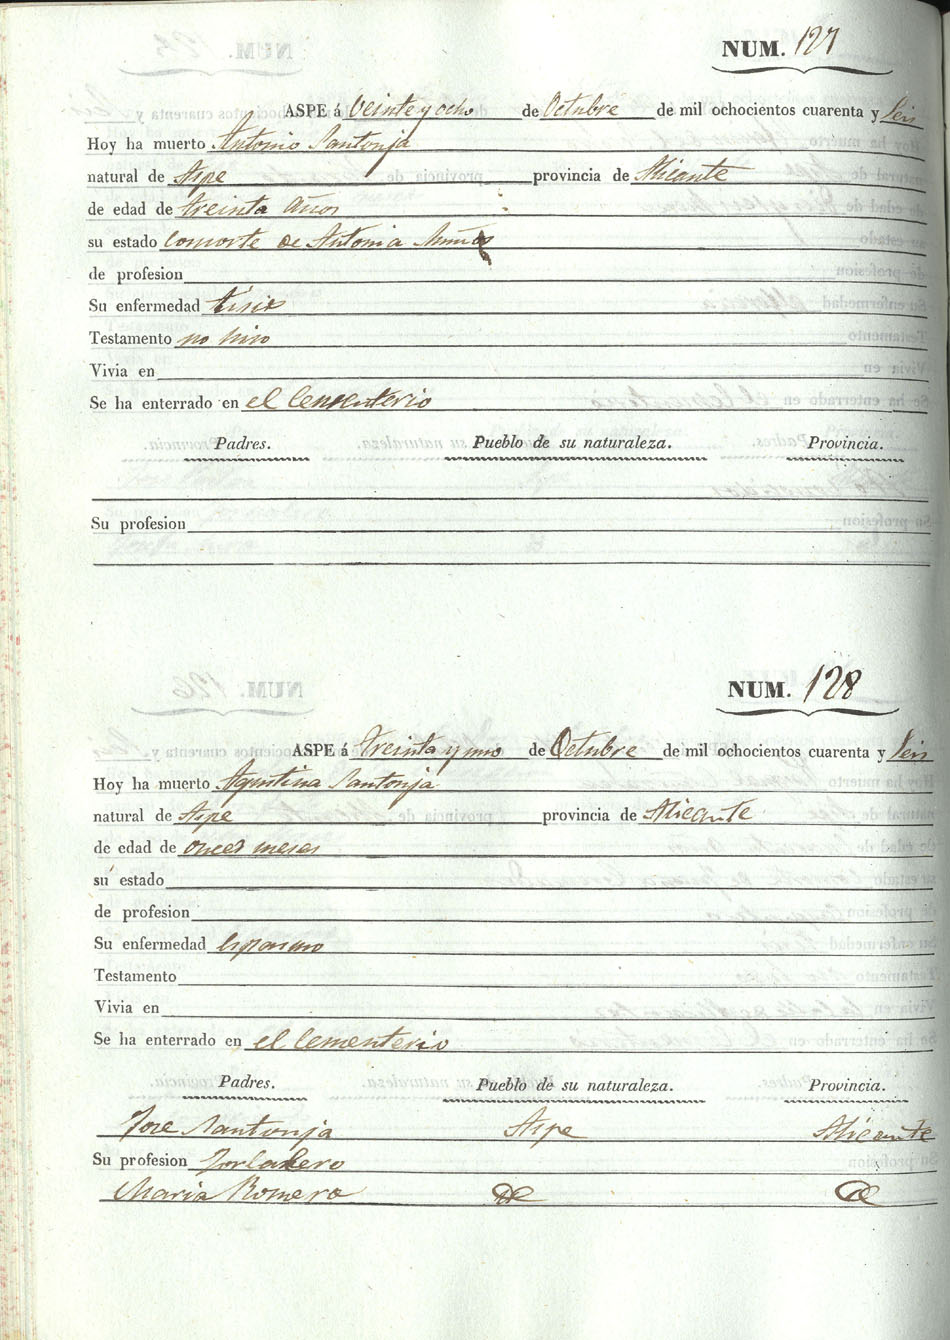 NUM. 127
ASPE á Veinte y ocho de Octubre de mil ochocientos cuarenta y seis
Hoy ha muerto Antonio Santonja
natural de Aspe provincia de Alicante
de edad de treinta años
su estado consorte de Antonia
de profesion
Su enfermedad tisis
Testamento no hiso
Vivia en
Se ha enterrado en el Cementerio
Padres. Pueblo de su naturaleza. Provincia.
Su profesion
NUM. 128
ASPE á treinta y uno de Octubre de mil ochocientos cuarenta y seis
Hoy ha muerto Agustina Santonja
natural de Aspe provincia de Alicante
de edad de onces meses
su estado
de profesion
Su enfermedad
Testamento
Vivia en
Se ha enterrado en el Cementerio
Padres. Pueblo de su naturaleza. Provincia.
Jose Santonja Aspe Alicante
Su profesion Jornalero
Maria Romero